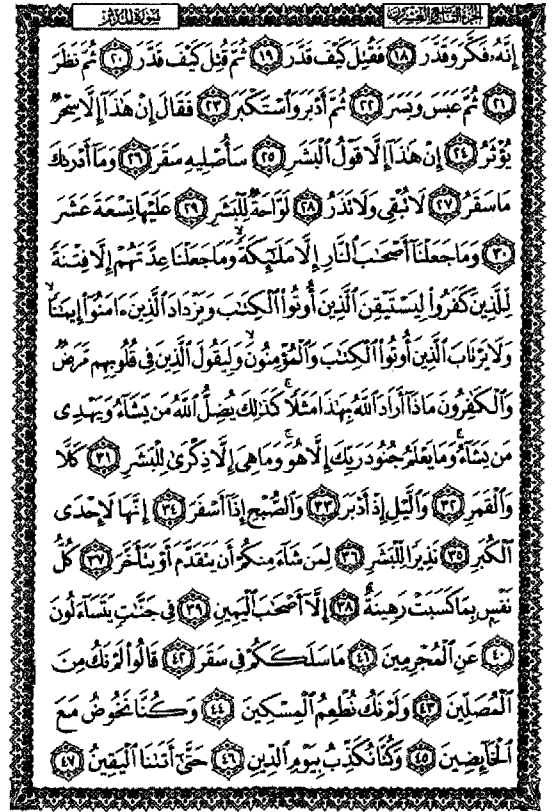 سورة المدثر الجزء التاسع والعشرون
إِنَّهُۥ فَكَّرَ وَقَدَّرَ ١٨ فَقُتِلَ كَيْفَ قَدَّرَ ١٩ ثُمَّ قُتِلَ كَيْفَ قَدَّرَ ٢٠ ثُمَّ نَظَرَ
٢١ ثُمَّ عَبَسَ وَبَسَرَ ٢٢ ثُمَّ أَدْبَرَ وَٱسْتَكْبَرَ ٢٣ فَقَالَ إِنْ هَٰذَآ إِلَّا سِحْرٌ
يُؤْثَرُ ٢٤ إِنْ هَٰذَآ إِلَّا قَوْلُ ٱلْبَشَرِ ٢٥ سَأُصْلِيهِ سَقَرَ ٢٦ وَمَآ أَدْرَىٰكَ
مَا سَقَرُ ٢٧ لَا تُبْقِى وَلَا تَذَرُ ٢٨ لَوَّاحَةٌ لِّلْبَشَرِ ٢٩ عَلَيْهَا تِسْعَةَ عَشَرَ
٣٠ وَمَا جَعَلْنَآ أَصْحَٰبَ ٱلنَّارِ إِلَّا مَلَٰٓئِكَةً ۙ وَمَا جَعَلْنَا عِدَّتَهُمْ إِلَّا فِتْنَةً
لِّلَّذِينَ كَفَرُوا۟ لِيَسْتَيْقِنَ ٱلَّذِينَ أُوتُوا۟ ٱلْكِتَٰبَ وَيَزْدَادَ ٱلَّذِينَ ءَامَنُوٓا۟ إِيمَٰنًا ۙ
وَلَا يَرْتَابَ ٱلَّذِينَ أُوتُوا۟ ٱلْكِتَٰبَ وَٱلْمُؤْمِنُونَ ۙ وَلِيَقُولَ ٱلَّذِينَ فِى قُلُوبِهِم مَّرَضٌ
وَٱلْكَٰفِرُونَ مَاذَآ أَرَادَ ٱللَّهُ بِهَٰذَا مَثَلًا ۚ كَذَٰلِكَ يُضِلُّ ٱللَّهُ مَن يَشَآءُ وَيَهْدِى
مَن يَشَآءُ ۚ وَمَا يَعْلَمُ جُنُودَ رَبِّكَ إِلَّا هُوَ ۚ وَمَا هِىَ إِلَّا ذِكْرَىٰ لِلْبَشَرِ ٣١ كَلَّا
وَٱلْقَمَرِ ٣٢ وَٱلَّيْلِ إِذْ أَدْبَرَ ٣٣ وَٱلصُّبْحِ إِذَآ أَسْفَرَ ٣٤ إِنَّهَا لَإِحْدَى
ٱلْكُبَرِ ٣٥ نَذِيرًا لِّلْبَشَرِ ٣٦ لِمَن شَآءَ مِنكُمْ أَن يَتَقَدَّمَ أَوْ يَتَأَخَّرَ ٣٧ كُلُّ
نَفْسٍۭ بِمَا كَسَبَتْ رَهِينَةٌ ٣٨ إِلَّآ أَصْحَٰبَ ٱلْيَمِينِ ٣٩ فِى جَنَّٰتٍ يَتَسَآءَلُونَ
٤٠ عَنِ ٱلْمُجْرِمِينَ ٤١ مَا سَلَكَكُمْ فِى سَقَرَ ٤٢ قَالُوا۟ لَمْ نَكُ مِنَ
ٱلْمُصَلِّينَ ٤٣ وَلَمْ نَكُ نُطْعِمُ ٱلْمِسْكِينَ ٤٤ وَكُنَّا نَخُوضُ مَعَ
ٱلْخَآئِضِينَ ٤٥ وَكُنَّا نُكَذِّبُ بِيَوْمِ ٱلدِّينِ ٤٦ حَتَّىٰٓ أَتَىٰنَا ٱلْيَقِينُ ٤٧